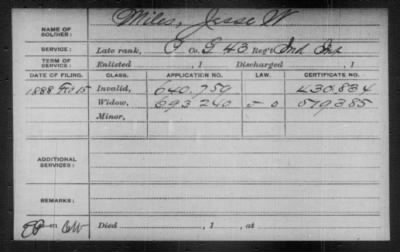 NAME OF SOLDIER: Miles, Jesse W.
SERVICE: Late rank, P Co. G 43 Reg't Ind Inf
TERM OF SERVICE: Enlisted , 1 Discharged , 1
DATE OF FILING. CLASS. APPLICATION NO. LAW. CERTIFICATE NO.
1888 15 Invalid, 640.759 430.834
Widow, 693 240 519385
Minor,
ADDITIONAL SERVICES:
REMARKS:
Died , 1 , at